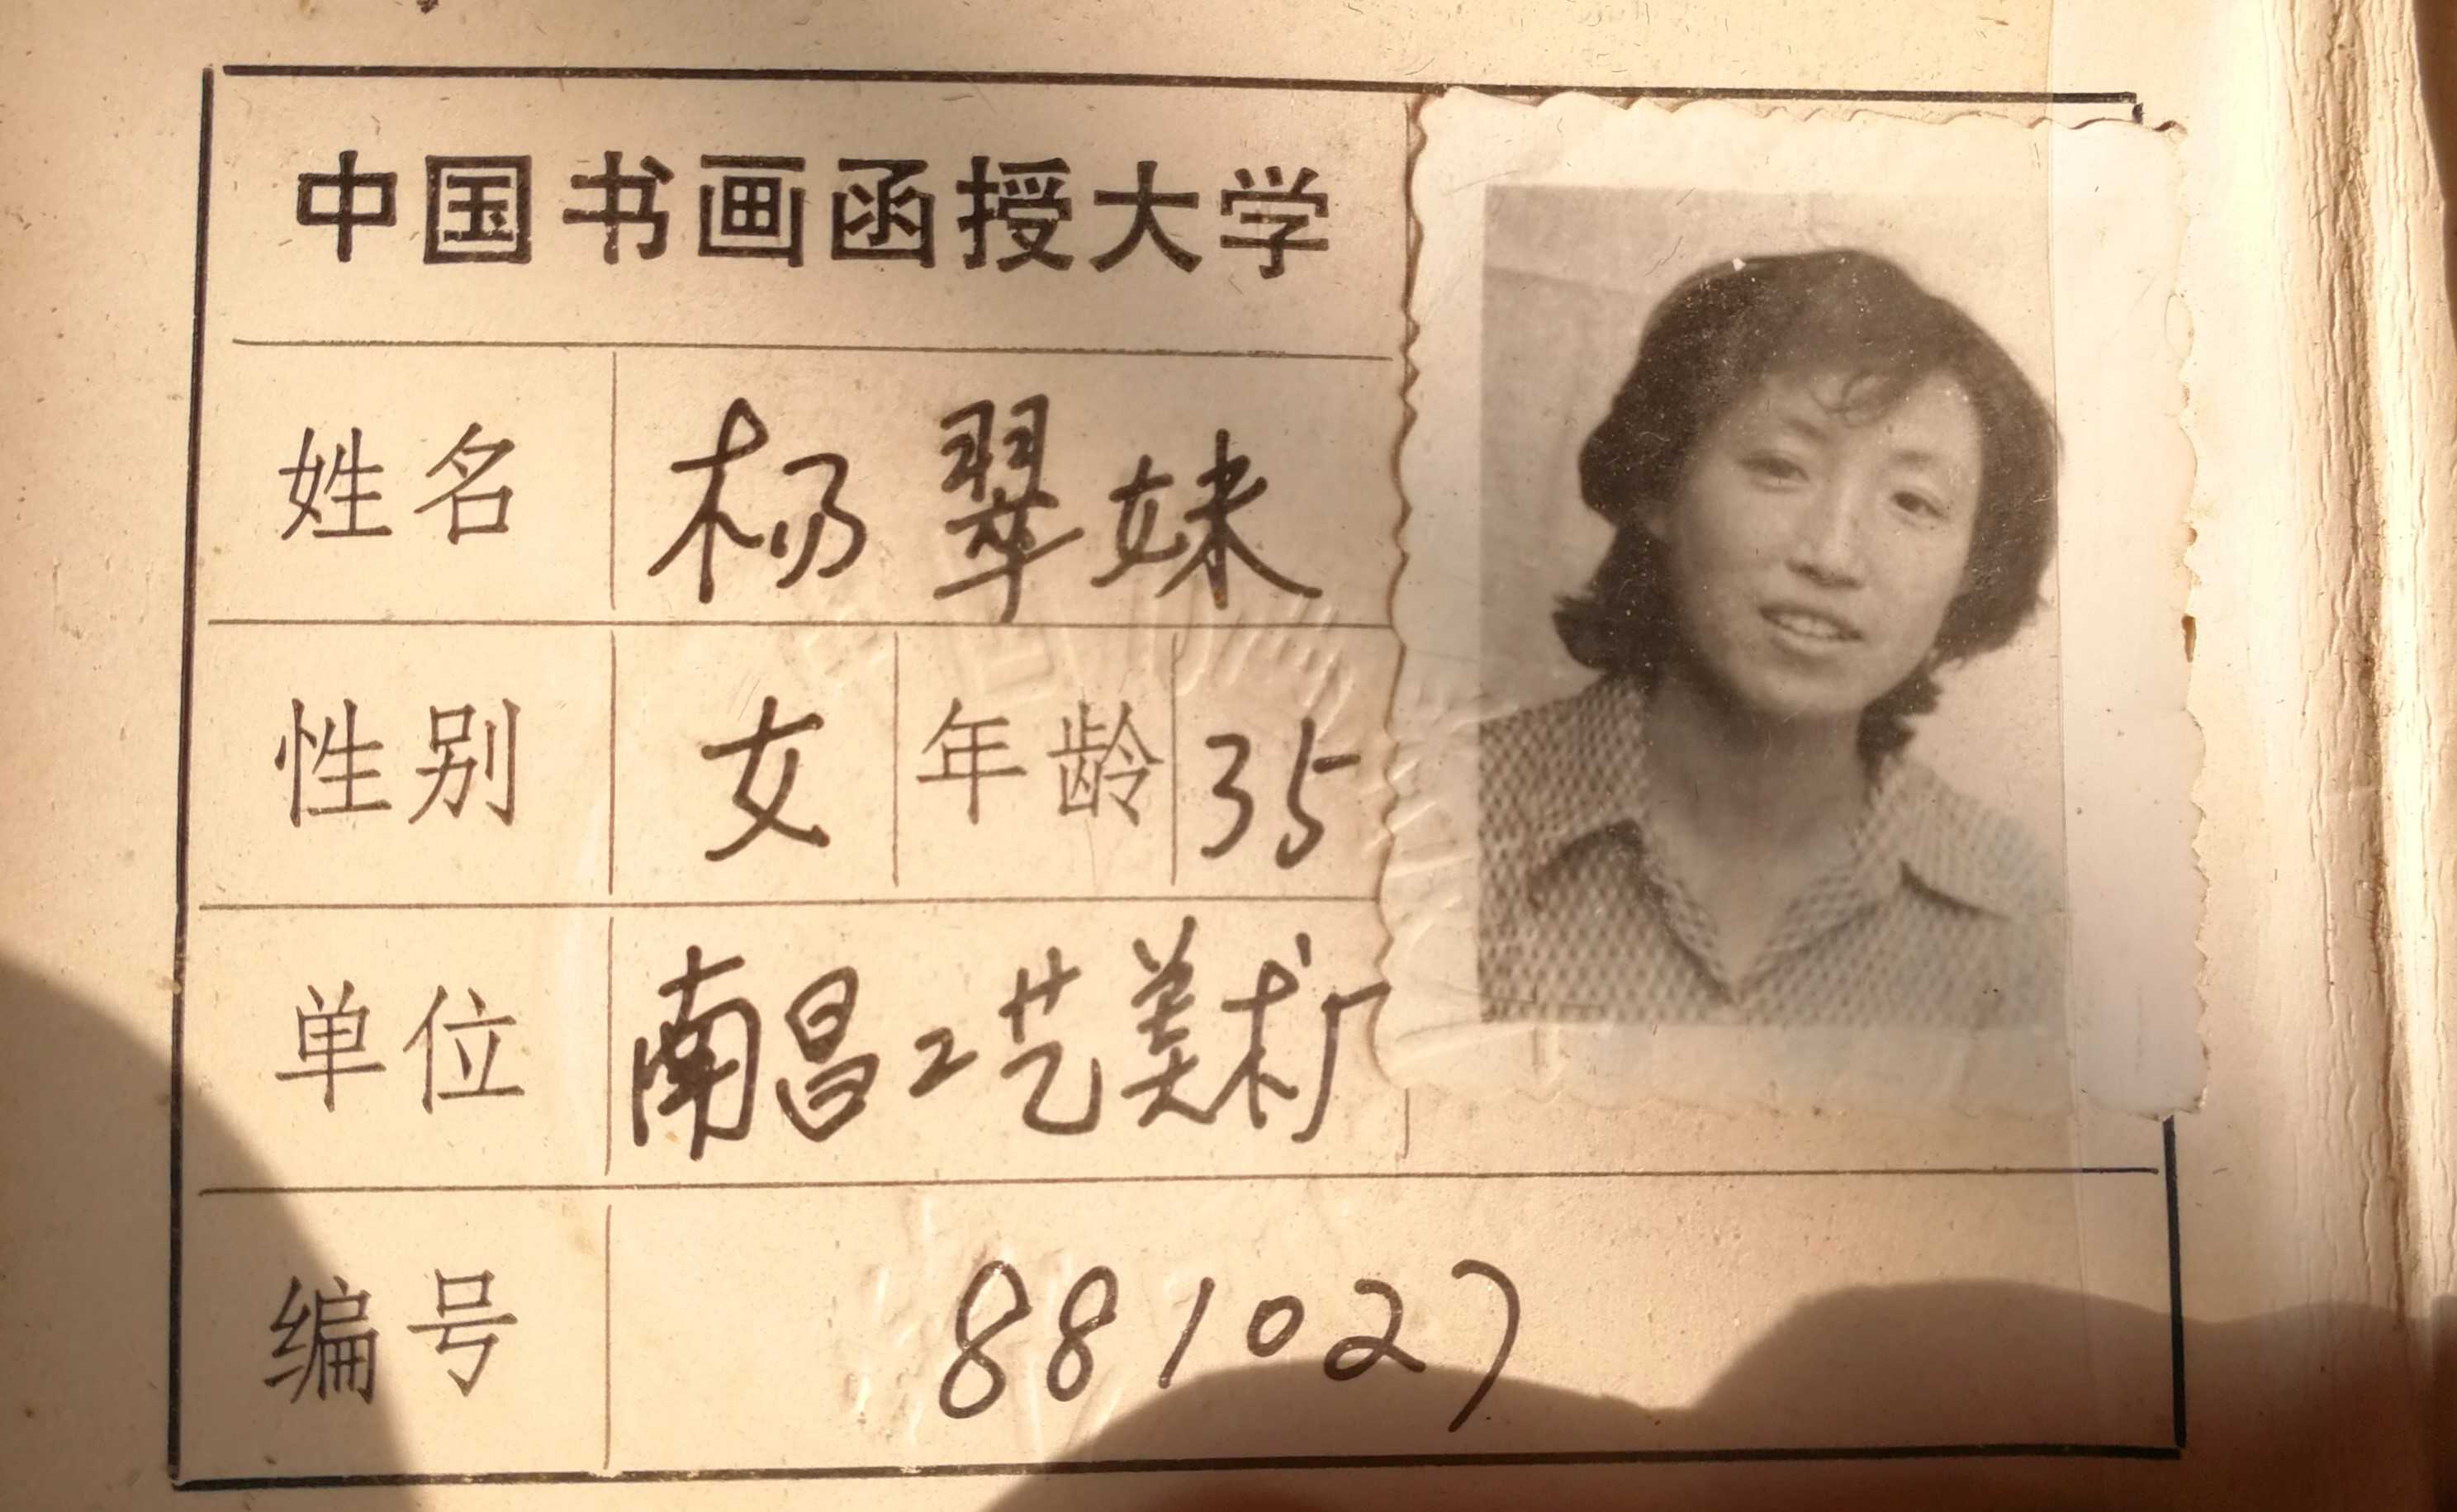 中国书画函授大学
姓名 杨翠妹
性别 女 年龄 35
单位 南昌工艺美术厂
编号 881027